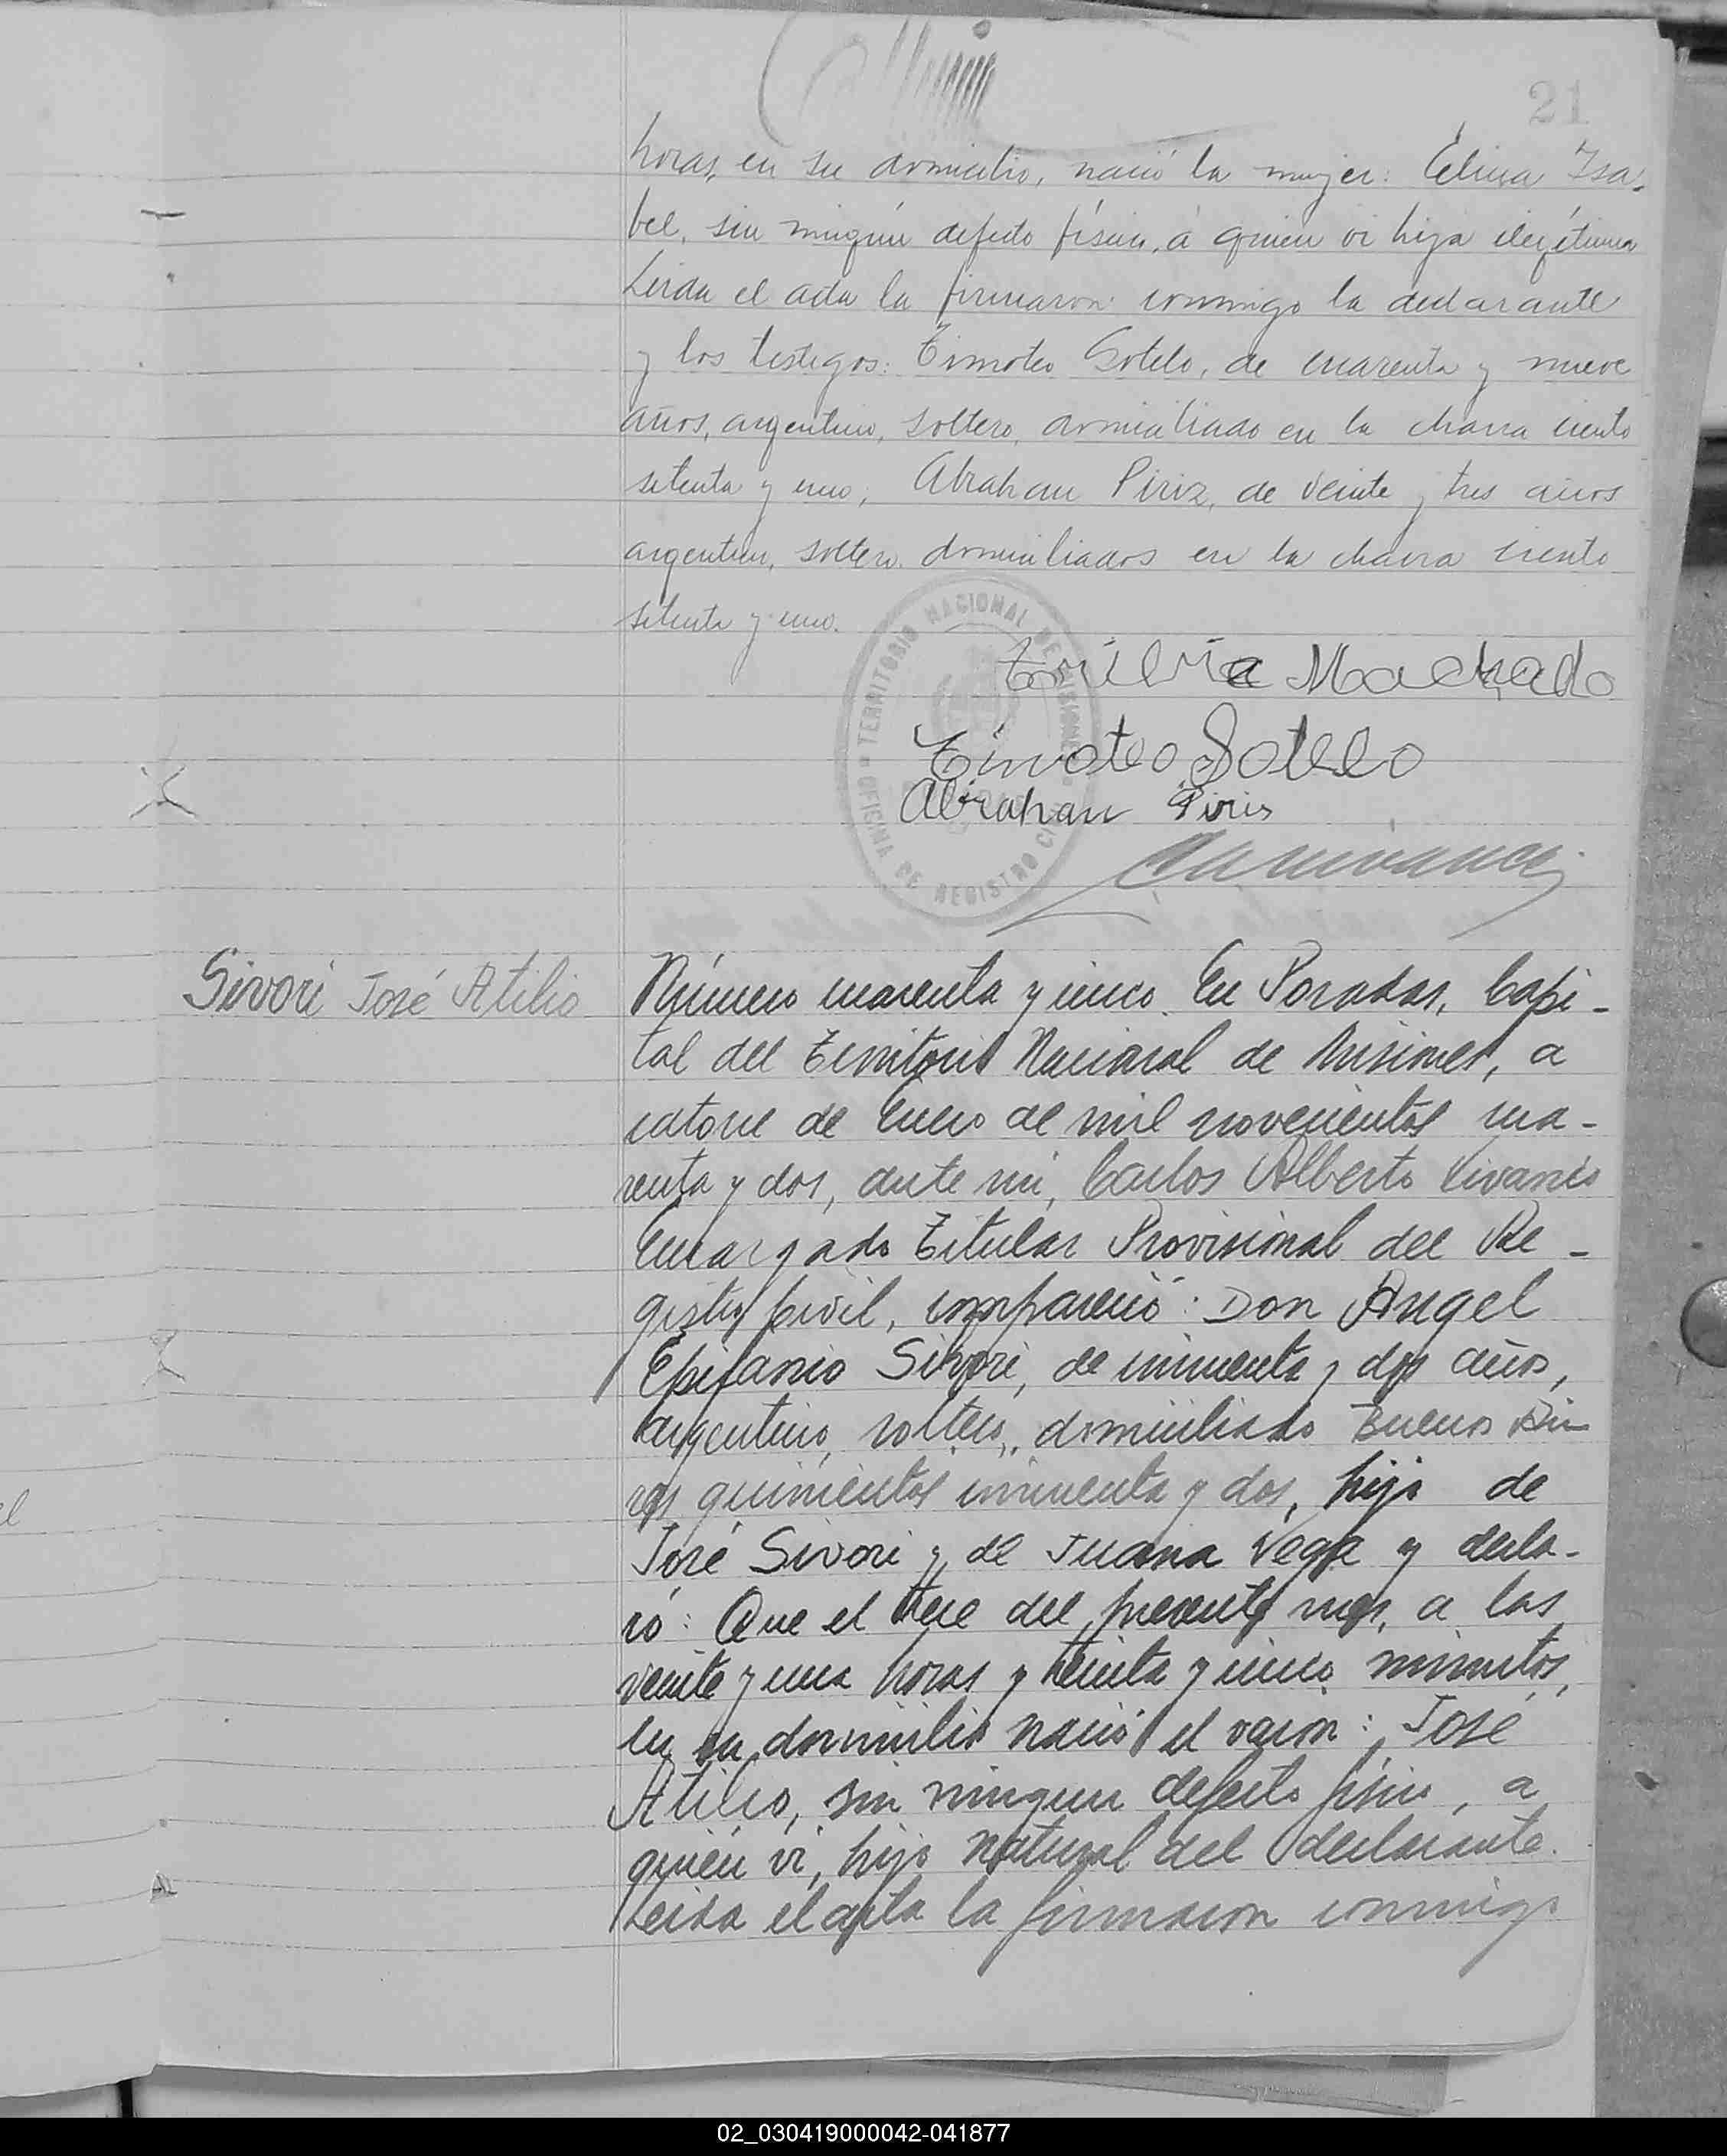 21
horas, en su domicilio, nació la mujer: Elina Isa-
bel, sin ningún defecto físico, a quien vi hija ilegítima
Leida el acta la firmaron conmigo la declarante
y los testigos: Timoteo Sotelo, de cuarenta y nueve
años, argentino, soltero, domiciliado en la chacra ciento
setenta y uno; Abrahan Piriz, de veinte y tres años
argentino, soltero, domiciliados en la chacra ciento
setenta y uno.
TERRITORIO NACIONAL DE MISIONES
OFICINA DE REGISTRO CIVIL
Machado
Timoteo Sotelo
Abrahan Piris
Sivori José Atilio
Número cuarenta y cinco. En Posadas, Capi-
tal del Territorio Nacional de Misiones, a
catorce de Enero de mil novecientos cua-
renta y dos, ante mi, Carlos Alberto Vivanco
Encargado Titular Provisional del Re-
gistro Civil, compareció: Don Angel
Epifanio Sivori, de cincuenta y dos años,
argentino, soltero, domiciliado Buenos Ai-
res quinientos cincuenta y dos, hijo de
José Sivori y de Juana Vega y decla-
ró: Que el trece del presente mes, a las
veinte y una horas y treinta y cinco minutos,
en su domicilio nació el varon: José
Atilio, sin ningun defecto fisico, a
quien vi, hijo natural del declarante.
Leida el acta la firmaron conmigo
02_030419000042-041877